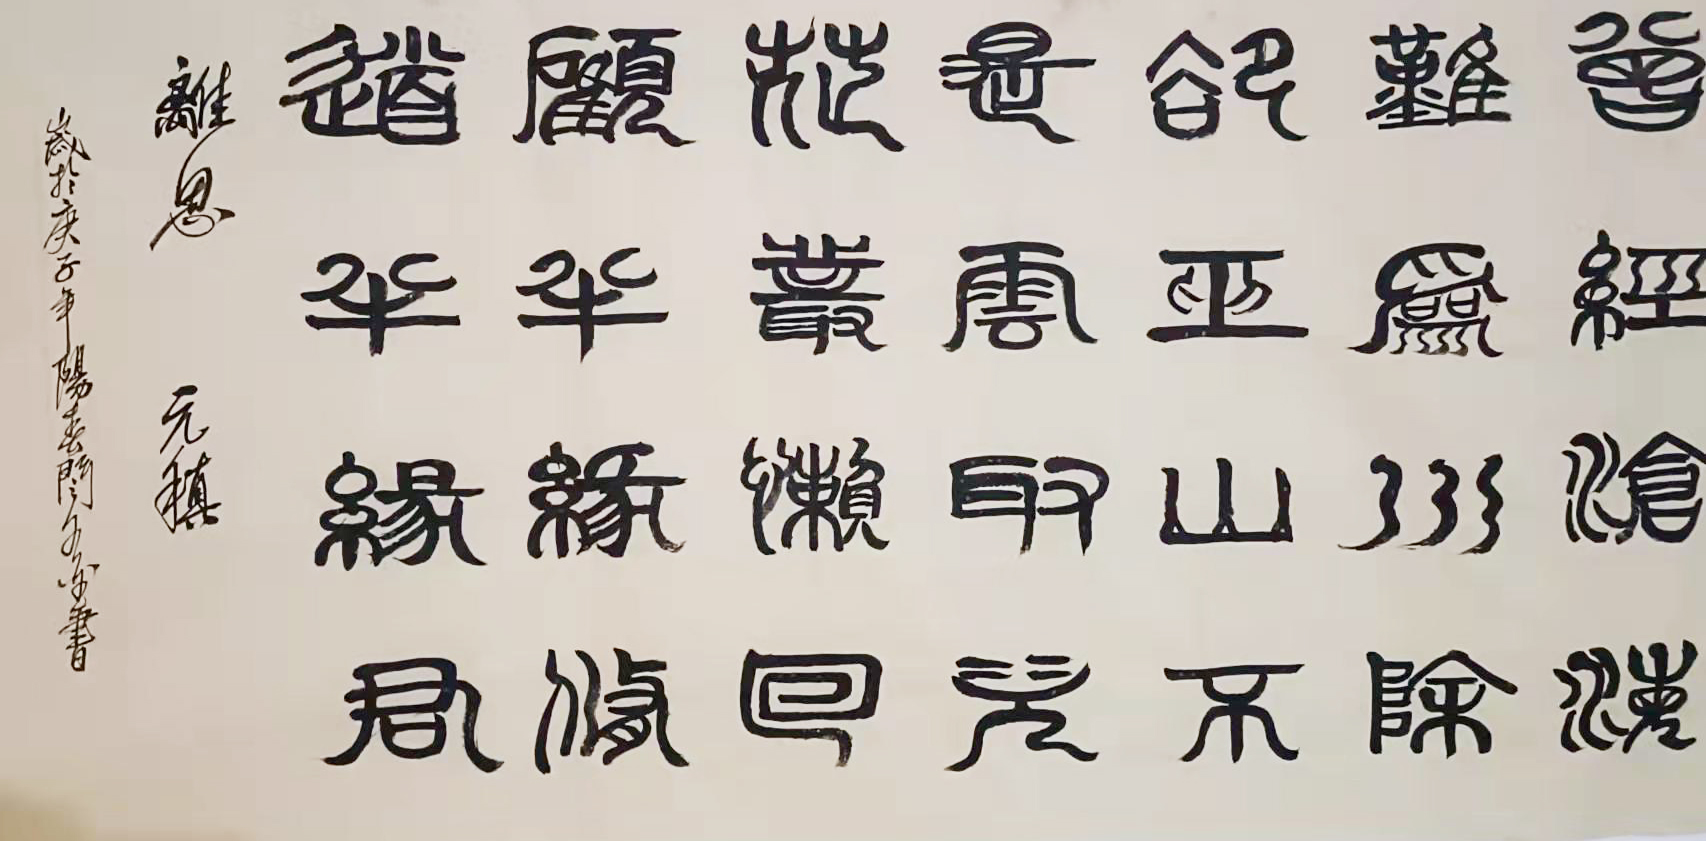 曾經滄海
難為水除
卻巫山不
是雲取次
花叢懶回
顧半緣修
道半緣君
離思 元稹
歲於庚子年陽春書